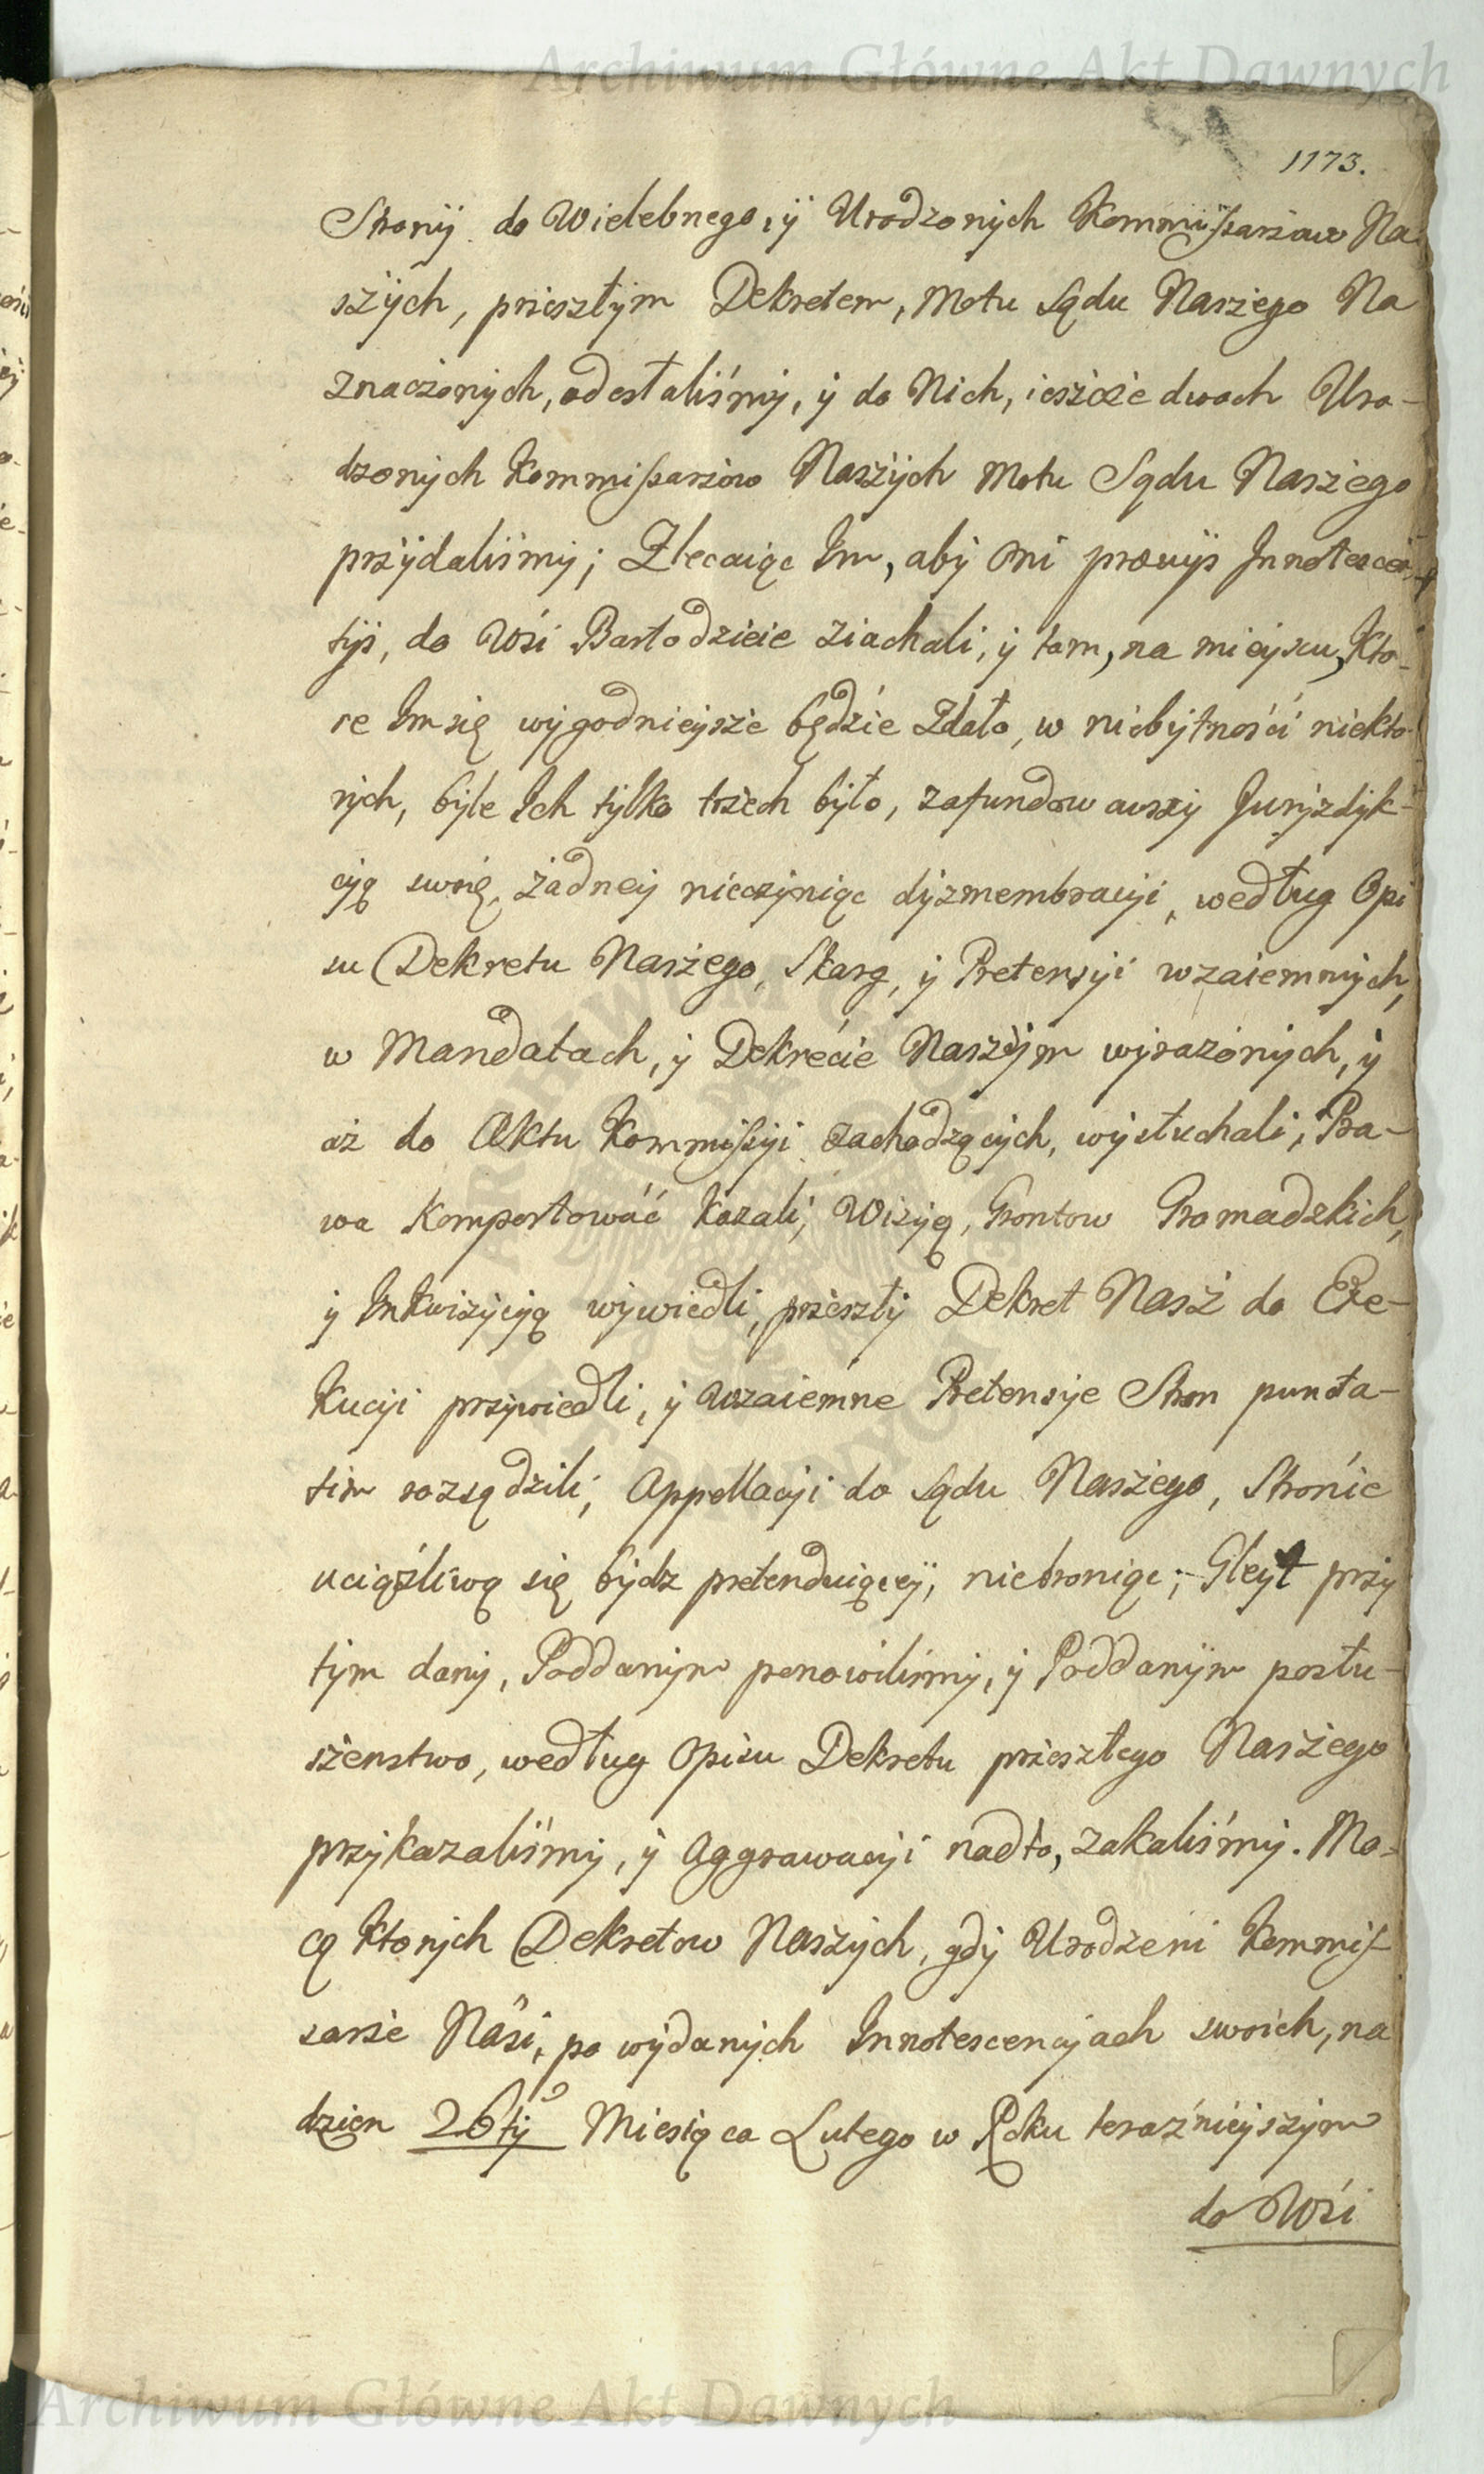 Archiwum Główne Akt Dawnych
1173.
Strony do Wielebnego, ÿ Urodzonych Kommissarzow Na-
szÿch, przeszłym Dekretem, Motu Sądu Naszego Na
znaczonych, odesłaliśmy, ÿ do Nich, ieszcze dwoch Uro-
dzonych Kommissarzow Naszÿch Motu Sądu Naszego
przÿdaliśmÿ; Zlecaiąc Im, aby Oni prævÿs Innotescen-
tÿs, do Wsi Bartodzieie ziachali, ÿ tam, na mieÿscu, Kto-
re Im się wygodnieÿsze będzie Zdało, w niebytności niekto-
rych, byle Ich tylko trzech było, zafundowawszy Juryzdyk-
cyą swoię, żadneÿ nieczyniąc dyzmembracÿi, według Opi
su Dekretu Naszego, Skarg, ÿ Pretensÿi wzaiemnych,
w Mandatach, ÿ Dekrecie Naszÿm wyrażonych, ÿ
aż do Aktu Kommissÿi zachodzących, wysłuchali, Pra-
wa Komportować kazali, Wizyą, Grontow Gromadzkich,
ÿ Inkwizycyą wywiedli, przeszły Dekret Nasz do Exe-
kucyi przywiedli, ÿ wzaiemne Pretensye Stron puncta-
tim rozsądzili, Appellacyi do Sądu Naszego, Stronie
uciążliwą się bydz pretenduiąceÿ, niebroniąc; Gleyt przy
tym dany, Poddanym ponowiliśmy, ÿ Poddanÿm posłu-
szenstwo, według Opisu Dekretu przeszłego Naszego
przykazaliśmy, ÿ Aggrawacyi nadto, zakaliśmy. Mo-
cą Ktorych Dekretow Naszych, gdy Urodzeni Kommis-
sarze Nasi, po wydanych Innotescencyach swoich, na
dzien 26tÿ Miesiąca Lutego w Roku teraźnieyszym
do Wsi
Archiwum Główne Akt Dawnych